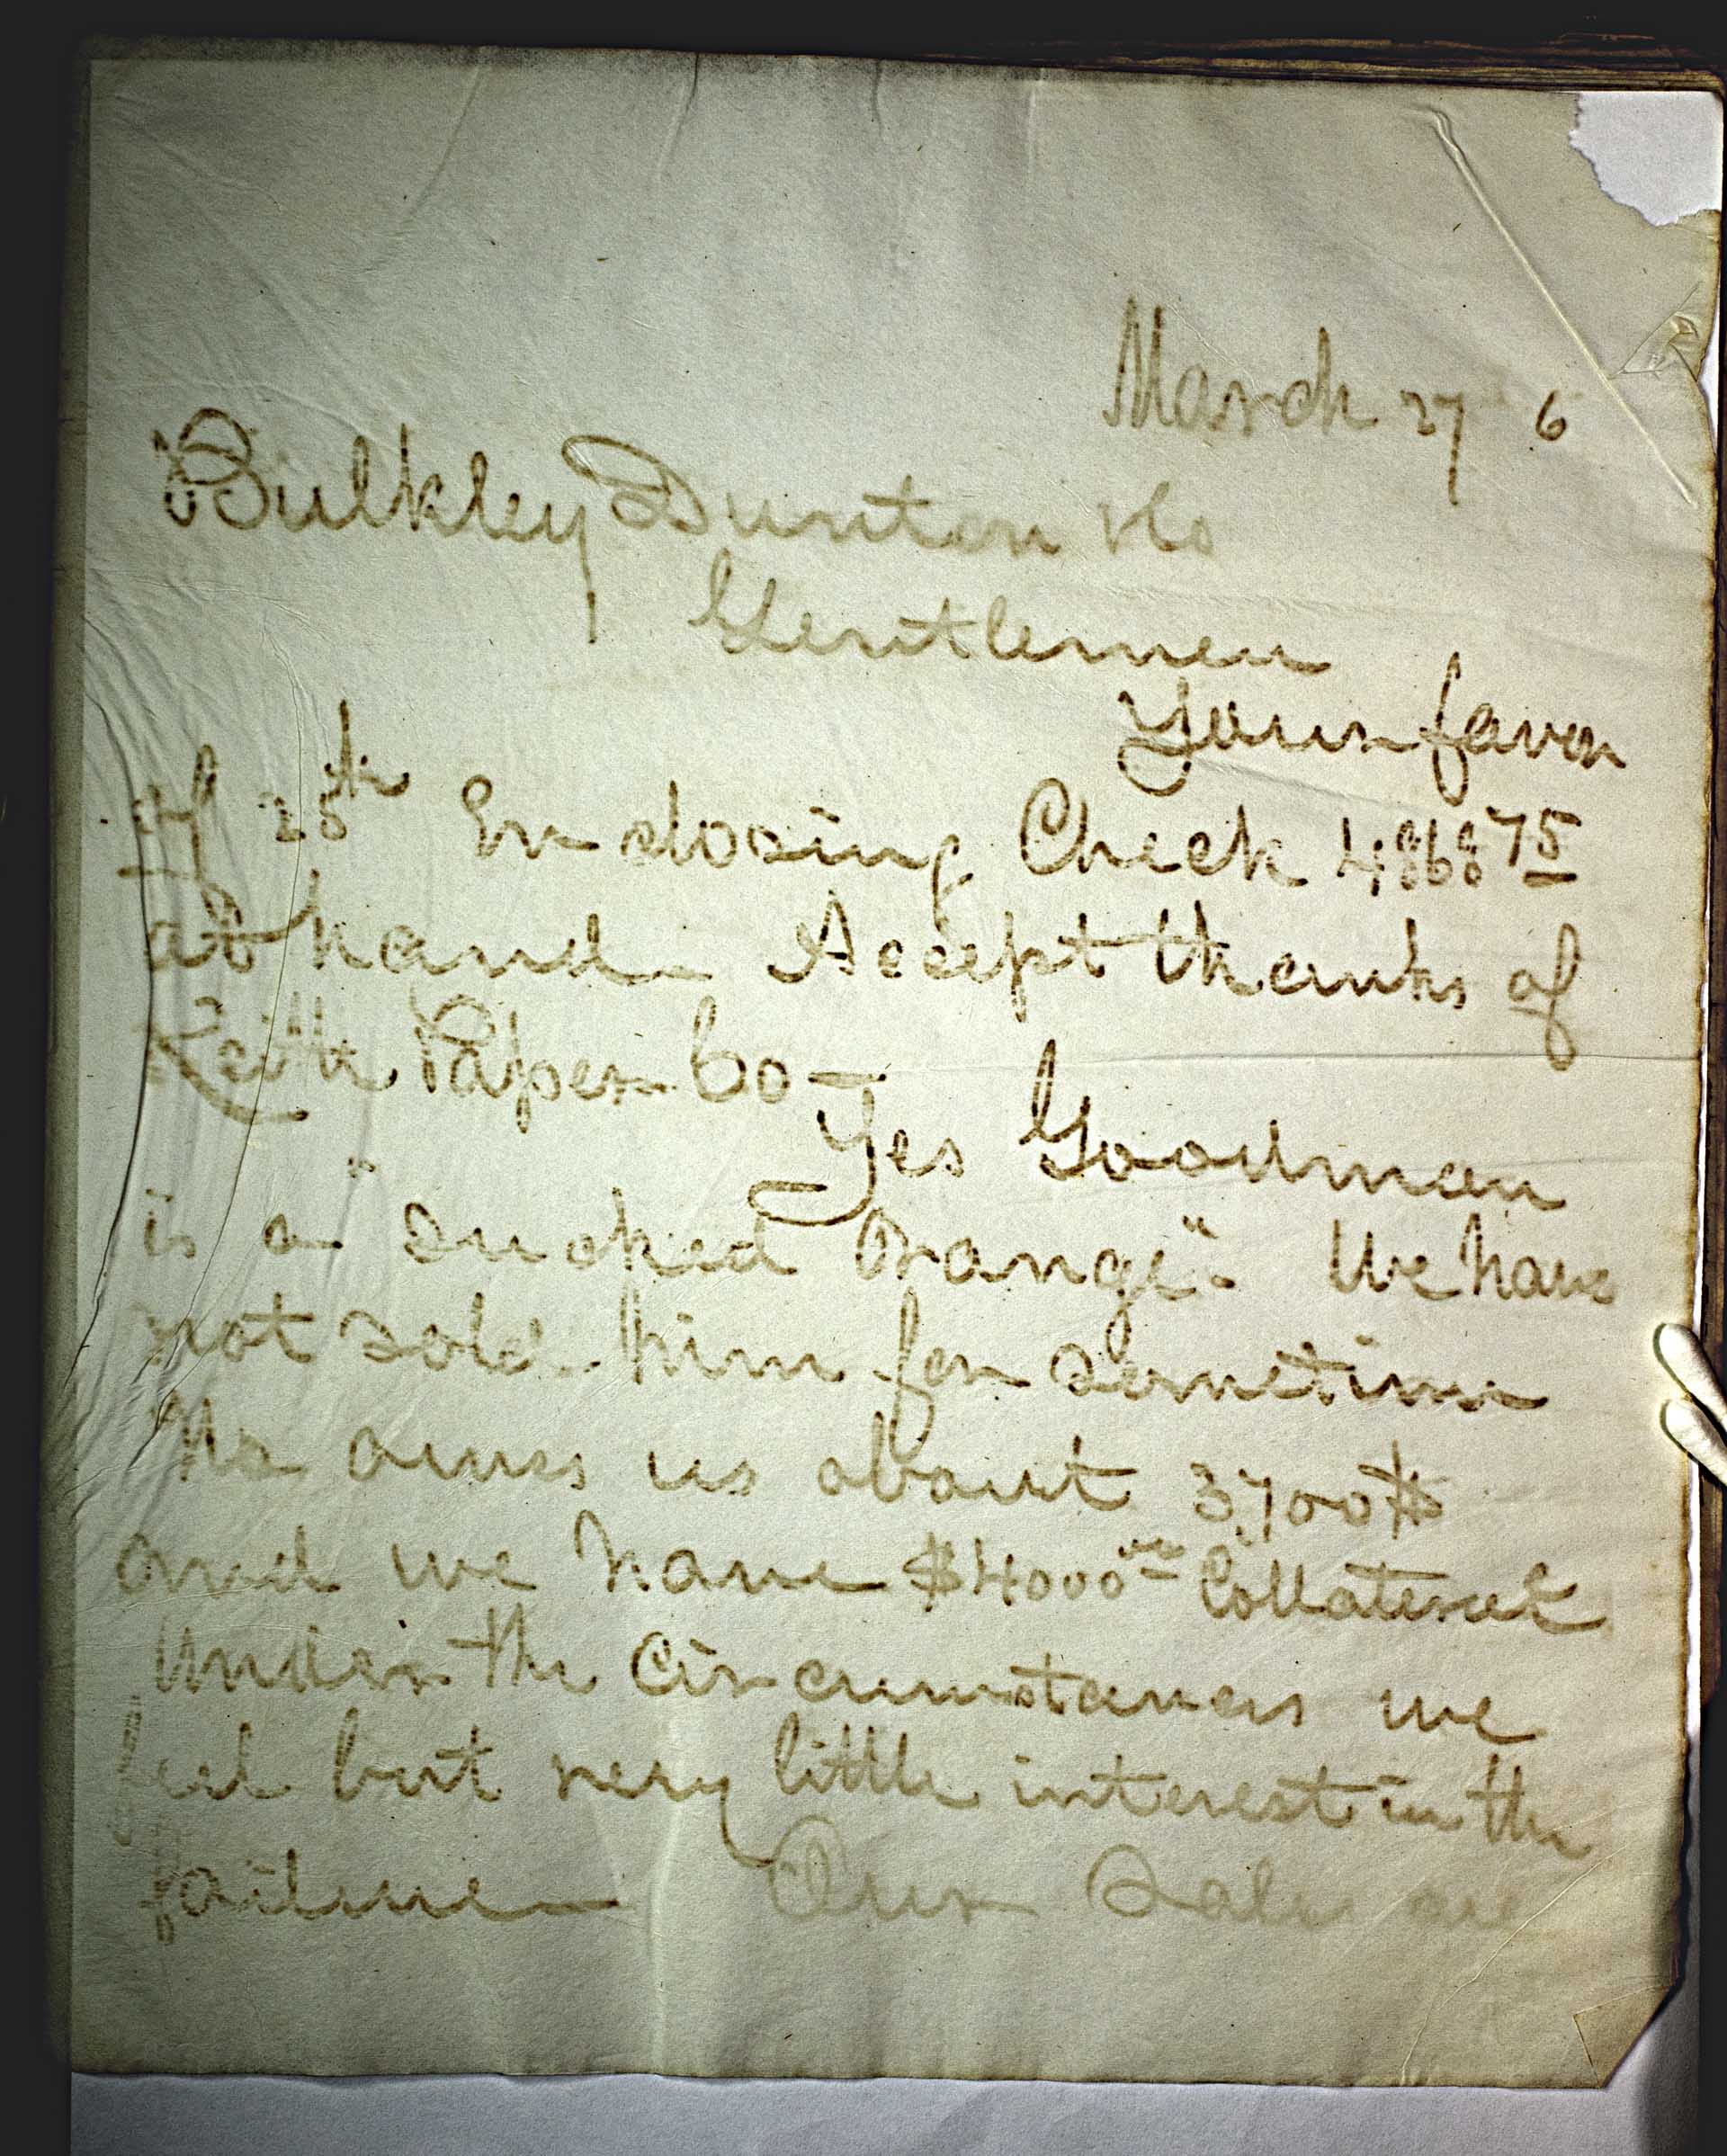 March 27 6
Bulkley Dunton & Co
Gentlemen
Your favor
of 25th Enclosing Check 4868 75
at hand - Accept thanks of
Keith Paper Co -
Yes Goodman
is a "sucked Orange". We have
not sold him for sometime
He owes us about 3700$
and we have $4000 00 Collateral
Under the Circumstances we
feel but very little interest in the
failure - Our Sales are